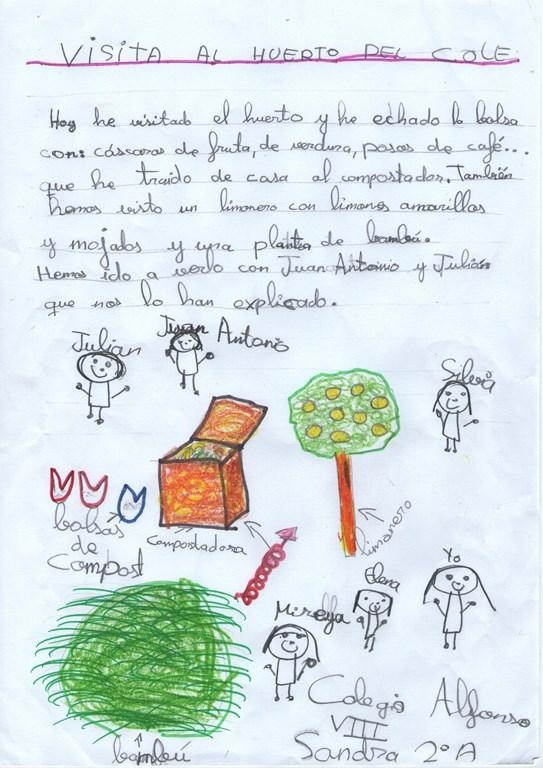 VISITA AL HUERTO DEL COLE
Hoy he visitado el huerto y he echado la bolsa
con: cáscaras de fruta, de verdura, posos de café...
que he traido de casa al compostador. También
hemos visto un limonero con limones amarillos
y mojados y una planta de bambú.
Hemos ido a verlo con Juan Antonio y Julián
que nos lo han explicado.
Julián
Juan Antonio
Silvia
bolsas
de
Compost
Compostadora
limonero
Yo
Elena
Mireya
bambú
Colegio Alfonso
VIII
Sandra 2º A